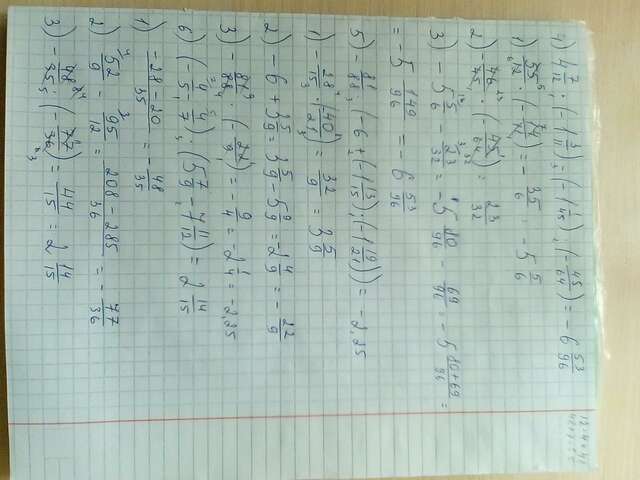 4) 4 7/12 : (-1 3/11) : (-1 1/45) · (-45/64) = -6 53/96
1) 55/12 · (-11/14) = - 35/6 = -5 5/6
2) - 46/45 · (-45/64) = 23/32
3) -5 5/6 - 23/32 = -5 80/96 - 69/96 = -5 80+69/96 =
= -5 149/96 = -6 53/96
5) - 81/88 : (-6 + (-1 13/15) : (-1 19/21)) = -2,25
1) - 28/15 · (40/21) = 32/9 = 3 5/9
2) -6 + 3 5/9 = 3 5/9 - 5 9/9 = -2 4/9 = - 22/9
3) - 81/88 · (- 22/9) = - 9/4 = -2 1/4 = -2,25
6) (- 4/5 - 4/7) : (5 7/9 - 7 11/12) = 2 14/15
1) -28-20/35 = - 48/35
2) 52/9 - 95/12 = 208-285/36 = - 77/36
3) - 48/35 : (- 77/36) = 44/15 = 2 14/15